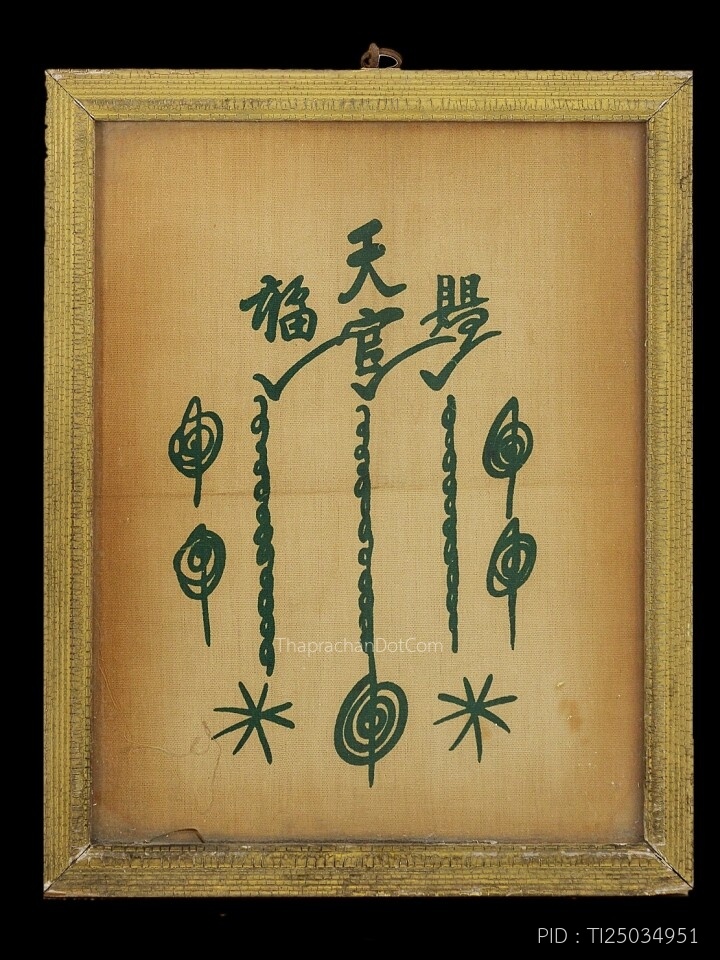 天官
賜
福
ThaprachanDotCom
PID : TI25034951